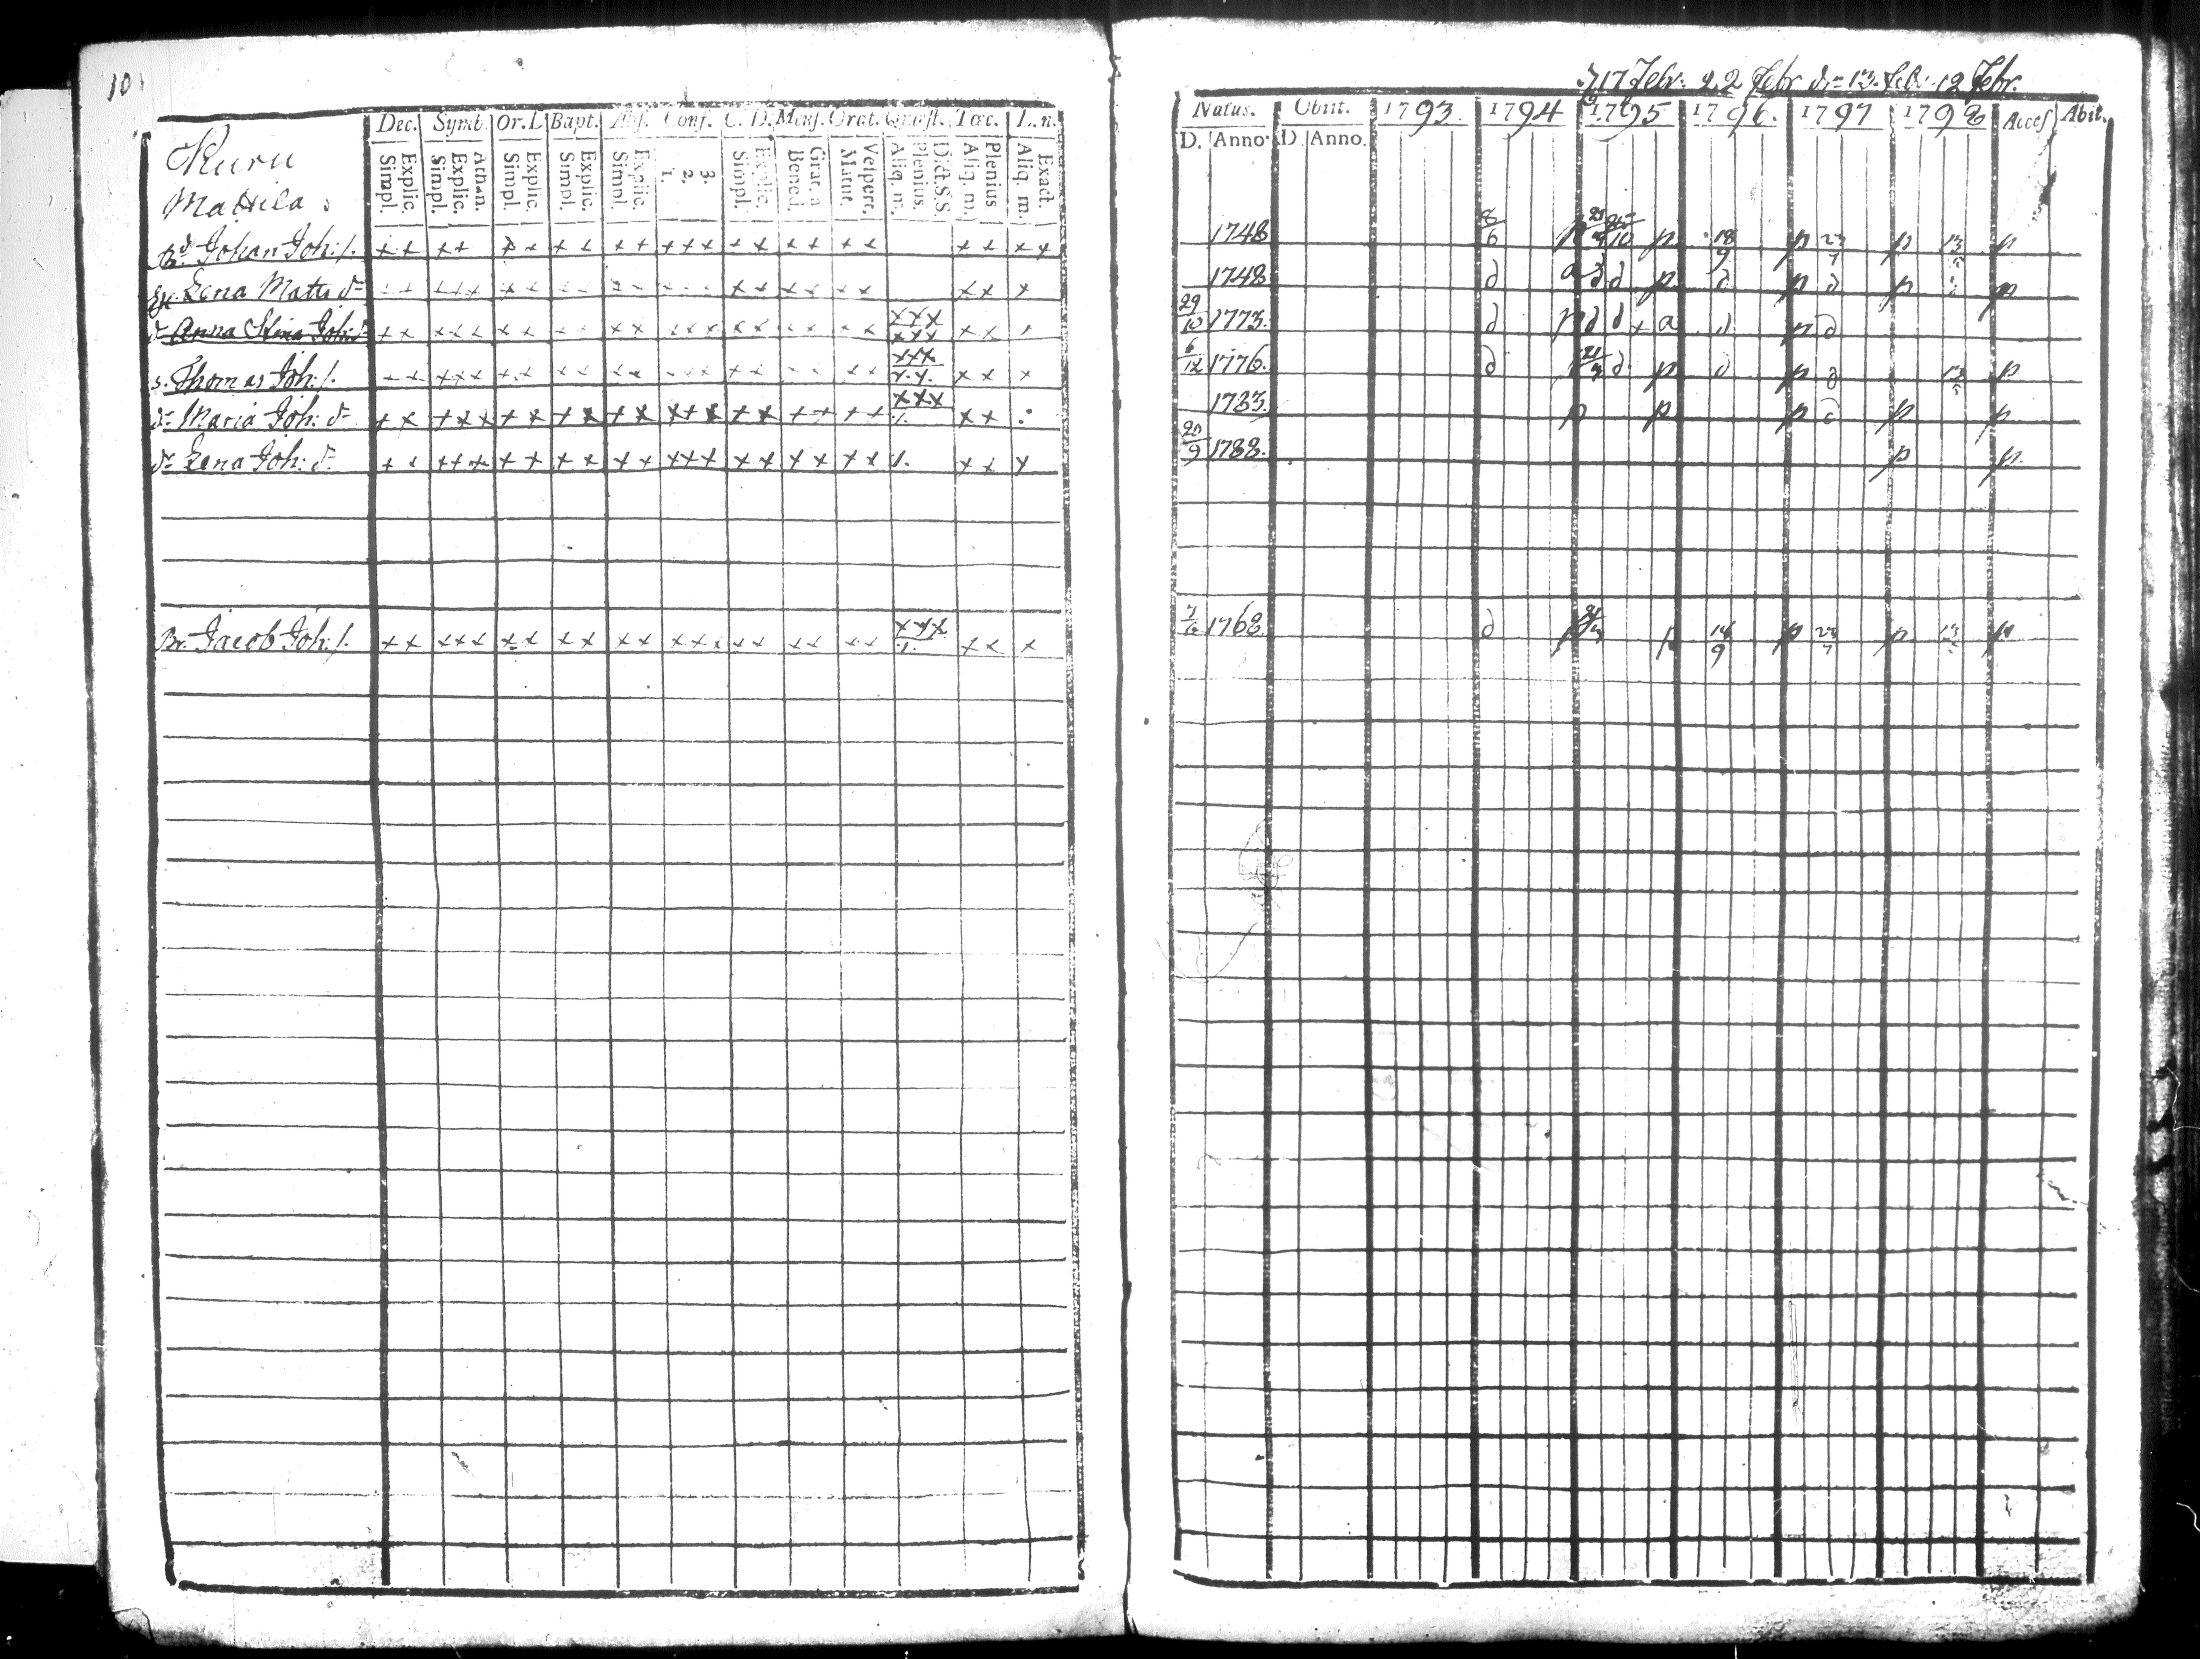 10
Kuru
Mattila
Dec. Symb. Or. D. Bapt. Abs. Conf. C. D. Mens. Orat. Quæst. Tœc. L. n.
Simpl. Explic. Simpl. Explic. Athan. Simpl. Explic. Simpl. Explic. Simpl. Explic. 1. 2. 3. Simpl. Explic. Bened. Grat. a. Matut. Vespert. Aliq. m. Plenius. Dict. S. S. Aliq. m. Plenius Aliq. m. Exact.
Bd. Johan Joh: s. + + + + + + + + + + + + + + + + + + + + + + + +
Lena Matts dr + + + + + + + + + + + + + + + + + + + + + + + +
dr Anna Stina Joh: dr + + + + + + + + + + + + + + + + + + + + + x x x x x x + +
s. Thomas Joh: s. + + + + + + + + + + + + + + + + + + + + + x x x x x x x x
dr Maria Joh: dr + + + + + + + + + + + + + + + + + + + + + x x x + +
dr Lena Joh: dr + + + + + + + + + + + + + + + + + + + + + x x x
Br. Jacob Joh: s. + + + + + + + + + + + + + + + + + + + + + x x x x x x
17 Febr: 22 Febr 13. Feb: 12 Febr.
Natus. Obiit. 1793. 1794 1795 1796. 1797 1798 Acces Abit.
D. Anno D. Anno.
1748 8/6 p p 18/9 p 23/7 p 13 p
1748 d a d d p d p d p p
29/10 1773. d p d d + a d p d
6/12 1776. d 21 d p d p d 13 p
1783. p p p d p p
20/9 1788. p p.
1768 d p 21 p 18/9 p 23/7 p 13 p